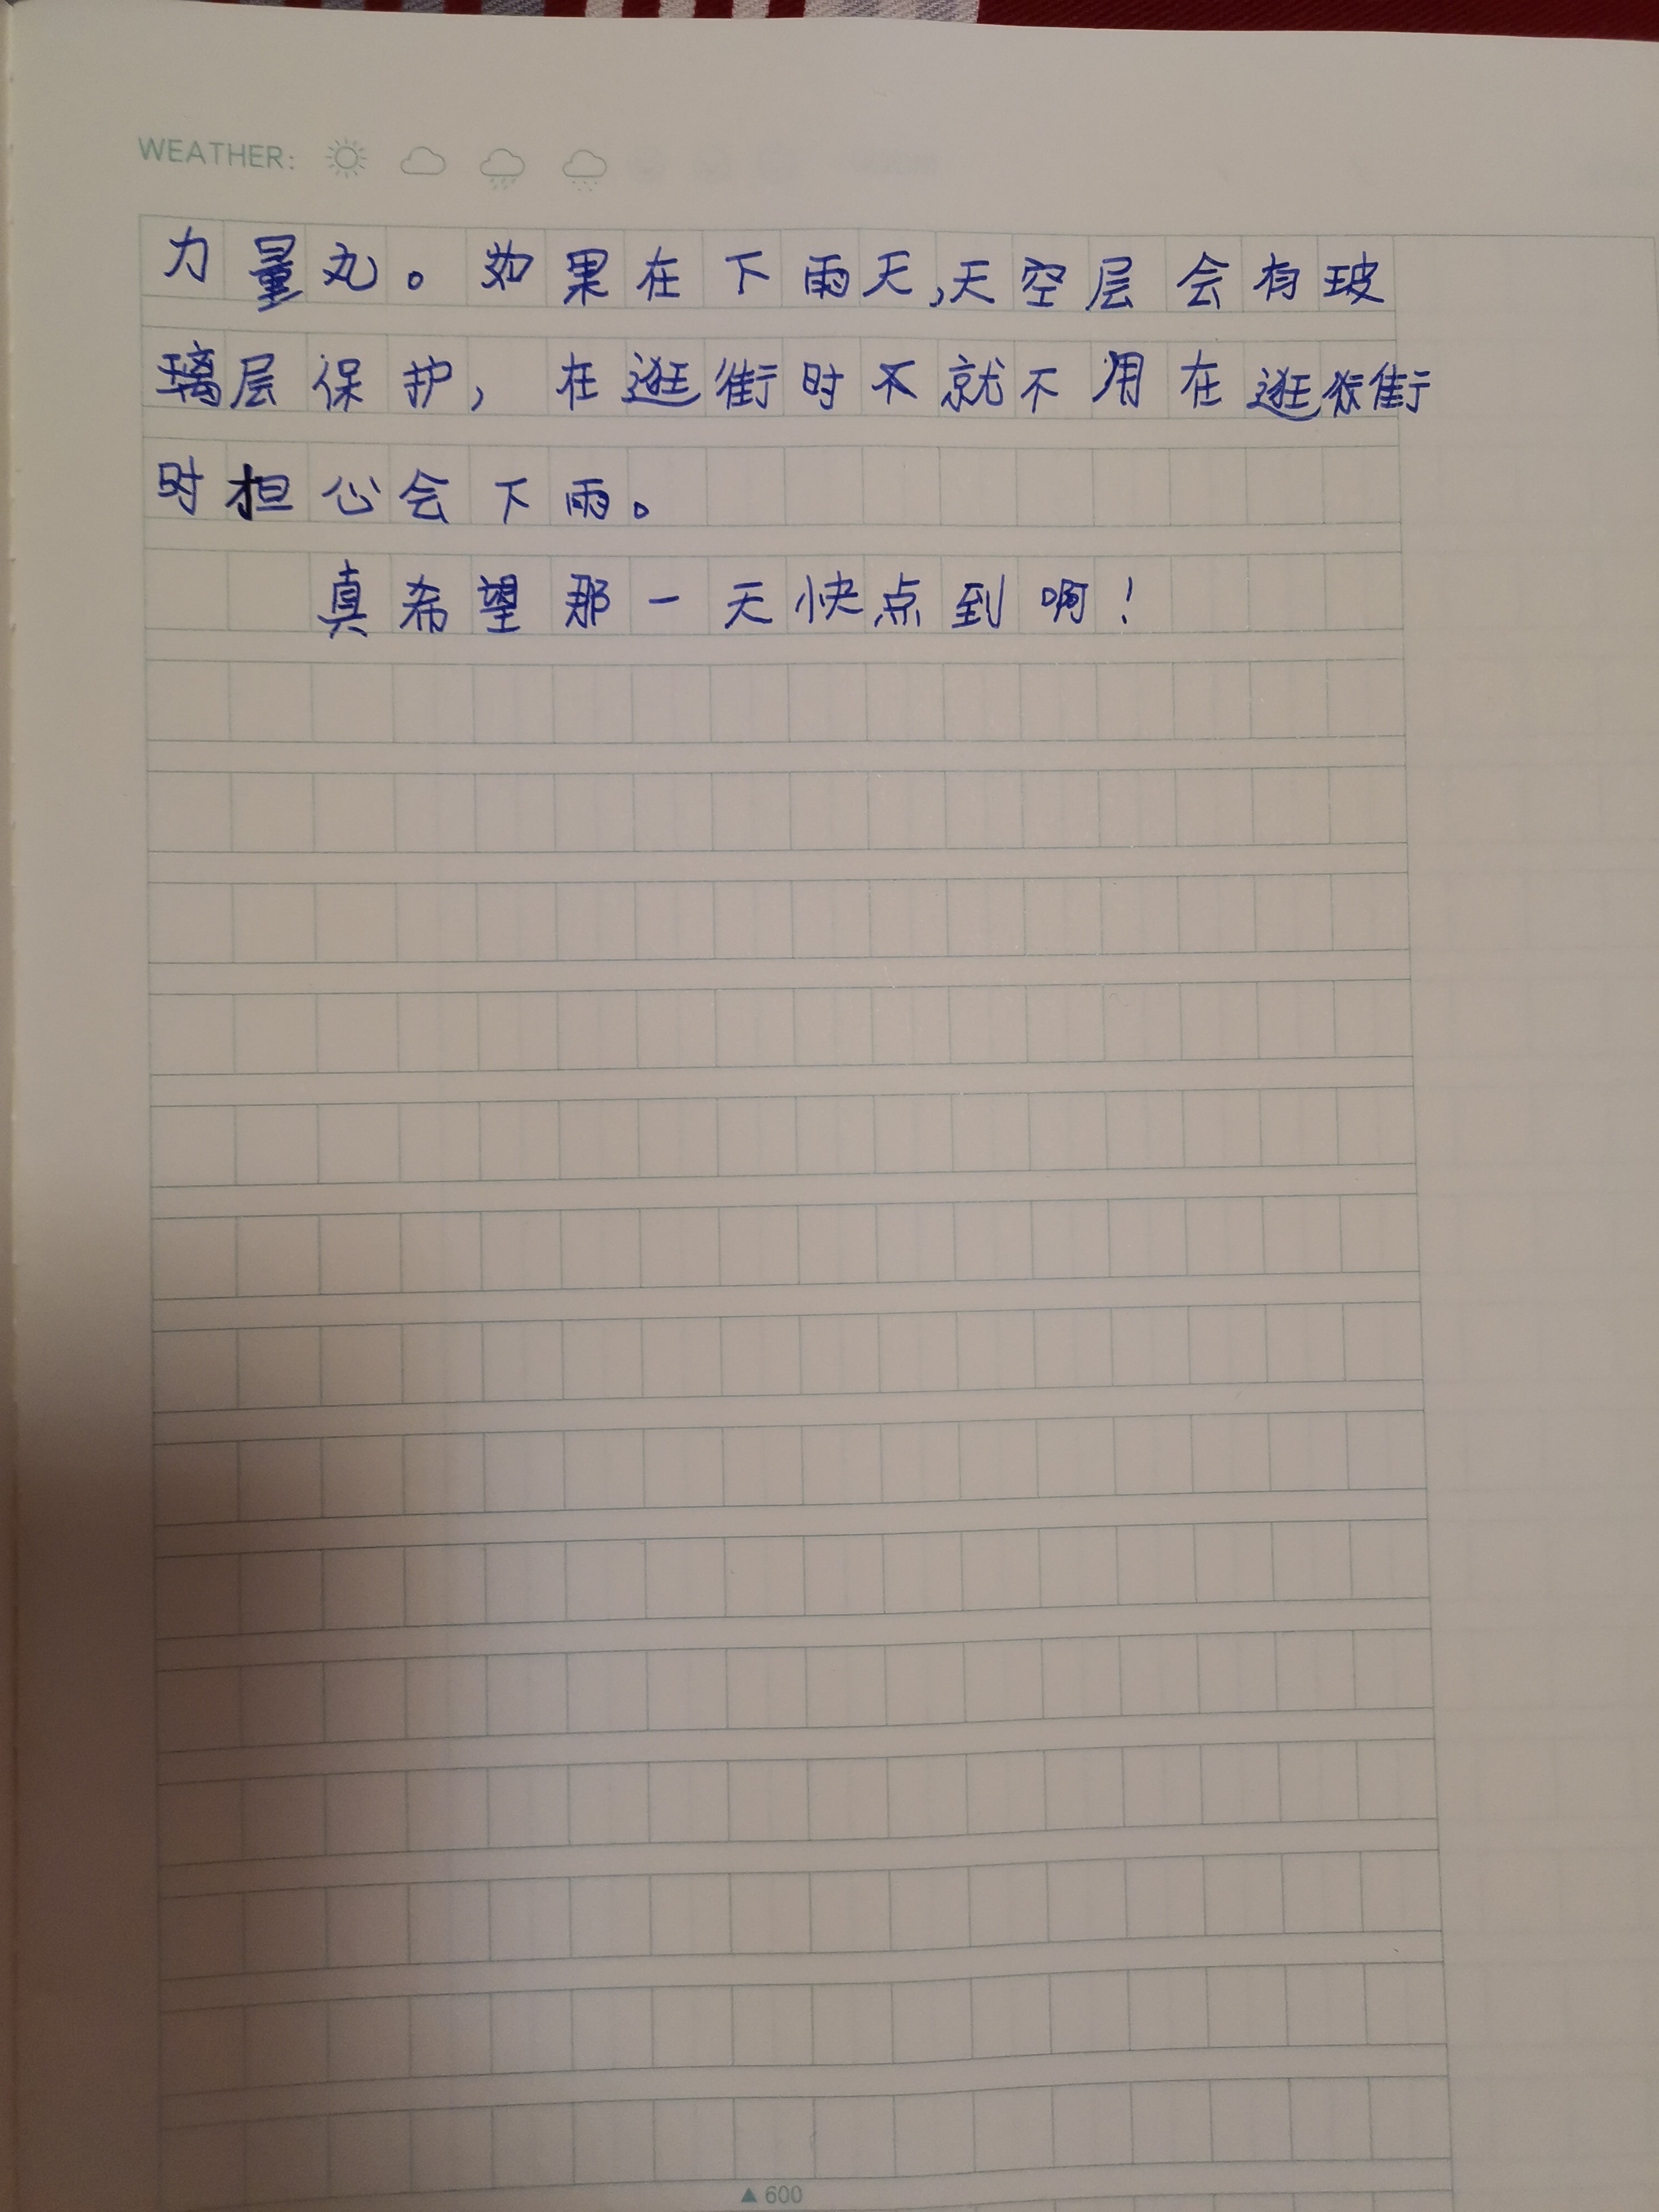 WEATHER:
力量丸。如果在下雨天,天空层会有玻
璃层保护,在逛街时不就不用在逛街
时担心会下雨。
真希望那一天快点到啊!
▲600